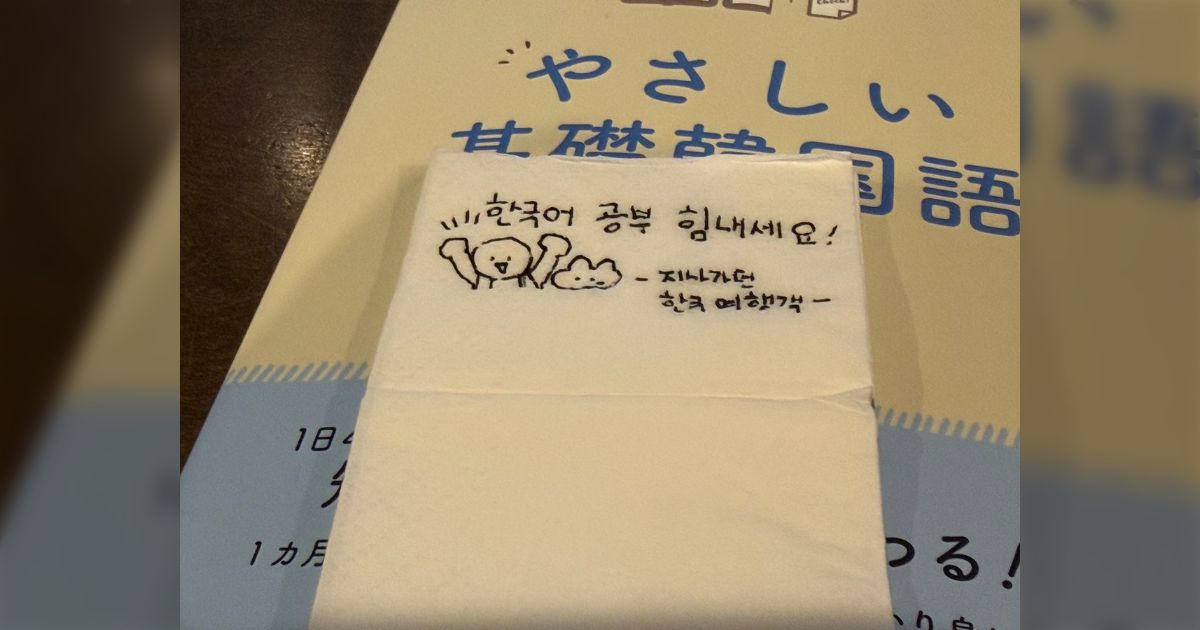 やさしい
基礎韓国語
한국어 공부 힘내세요!
- 지나가던
한국 여행객 -
1日
1カ月
つる!